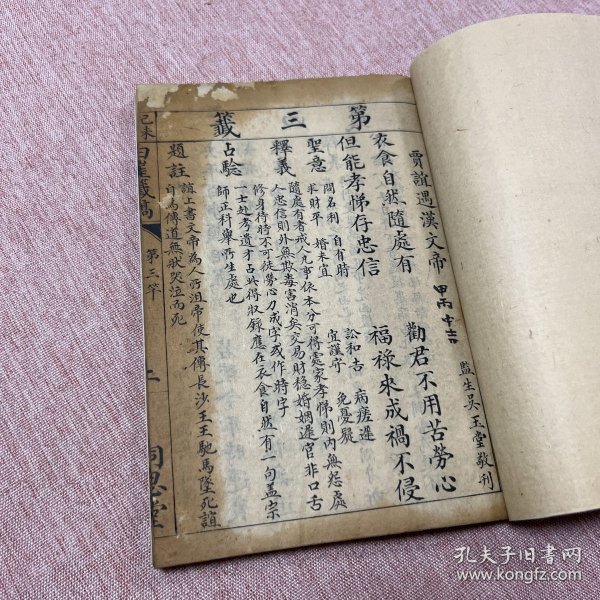 第三籤
賈誼遇漢文帝 甲丙 中吉
監生吳玉堂敬刊
衣食自然隨處有 勸君不用苦勞心
但能孝悌存忠信 福祿來成禍不侵
聖意
問名利 自有時 訟和吉 病瘥遲
求財平 婚未宜 宜謹守 免憂疑
釋義
隨處有者戒人凡事依本分可得處家孝悌則內無怨處
人忠信則外無欺毒害消矣交易財穩婚姻遲官非口舌
修身待時不可徒勞心刀成字或作時字
占驗
一士赴考遺才占此得收錄應在衣食自然有一句蓋宗
師正科舉所生處也
題註
誼上書文帝為人所沮帝使其傅長沙王王馳馬墜死誼
自為傅道無狀哭泣而死
籤
第三竿
二
孔夫子旧书网
www.kongfz.com